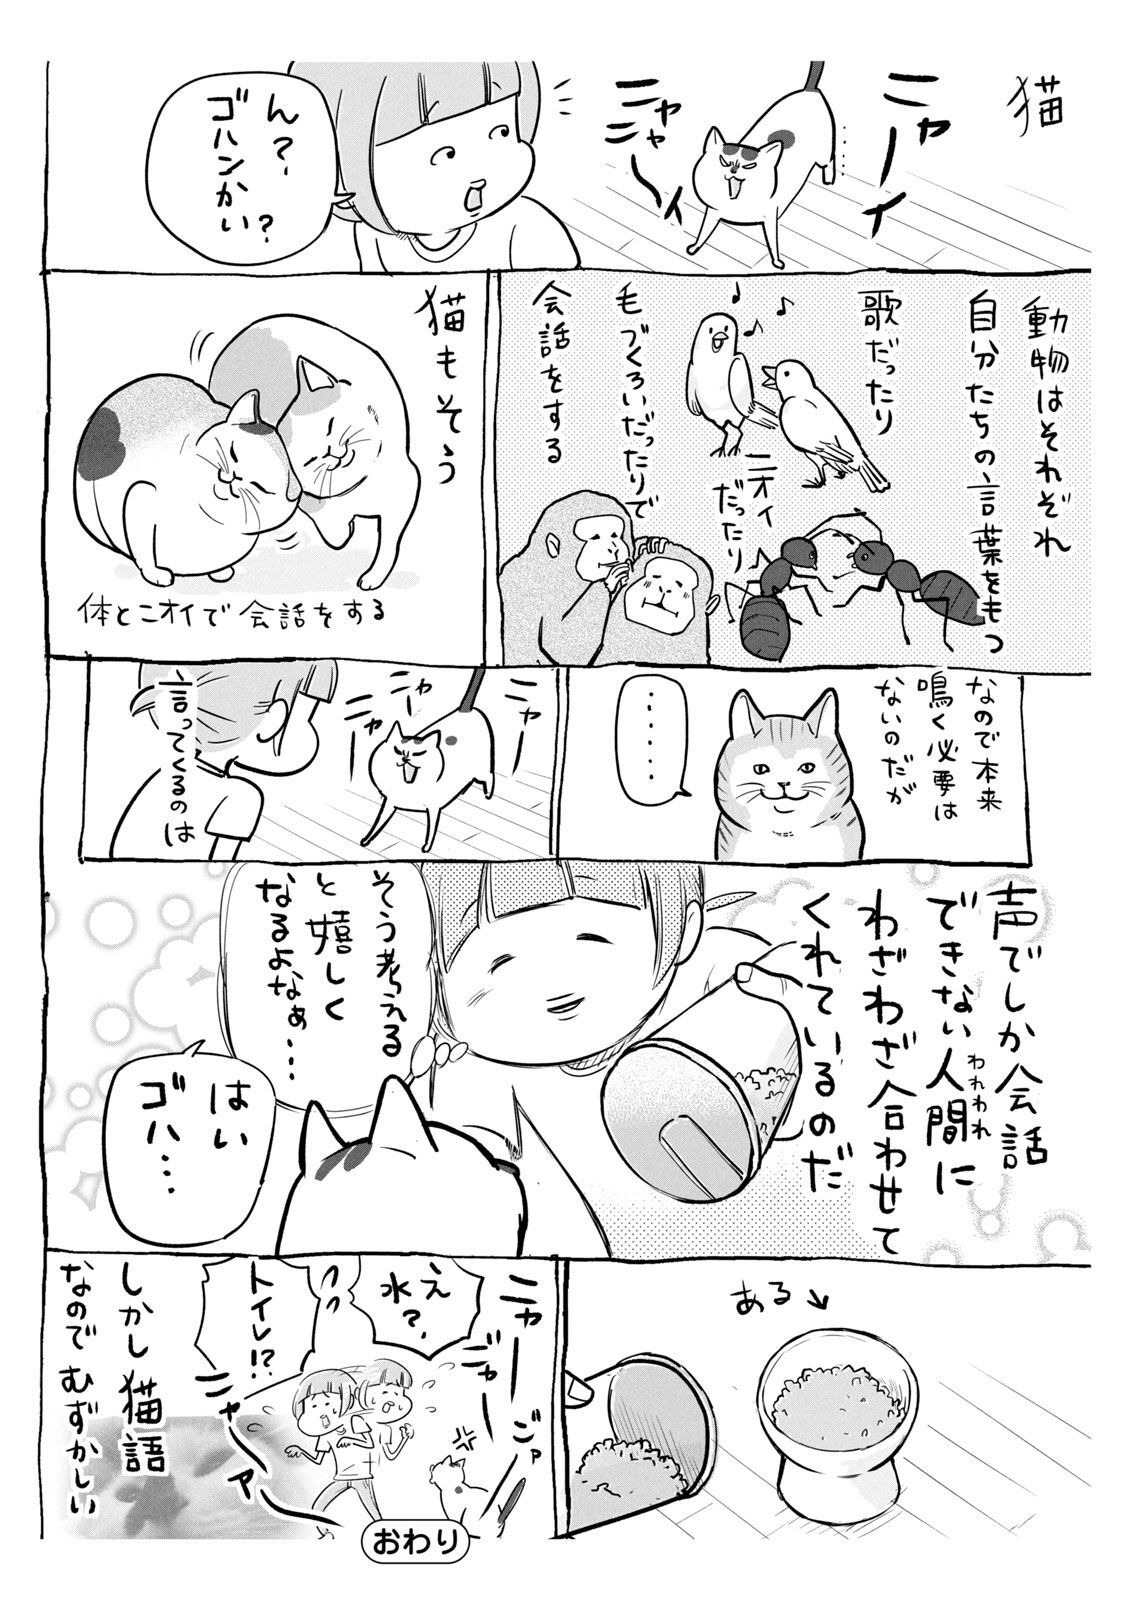 猫
ニャーイ
ニャャ
ニャャ〜イ
ん?
ゴハンかい?
動物はそれぞれ
自分たちの言葉をもつ
歌だったり
ニオイ
だったり
毛づくろいだったりで
会話をする
猫もそう
体とニオイで会話をする
なので本来
鳴く必要は
ないのだが
・・・・・
ニャー
ニャー
ニャー
言ってくるのは
声でしか会話
できない人間に
われわれ
わざわざ合わせて
くれているのだ
そう考える
と嬉しく
なるよなぁ…
はい
ゴハ…
ある
ニャー
ニ゛ャー
ゴァ
え
水?
トイレ!?
ニャーァ
しかし猫語
なので むずかしい
おわり